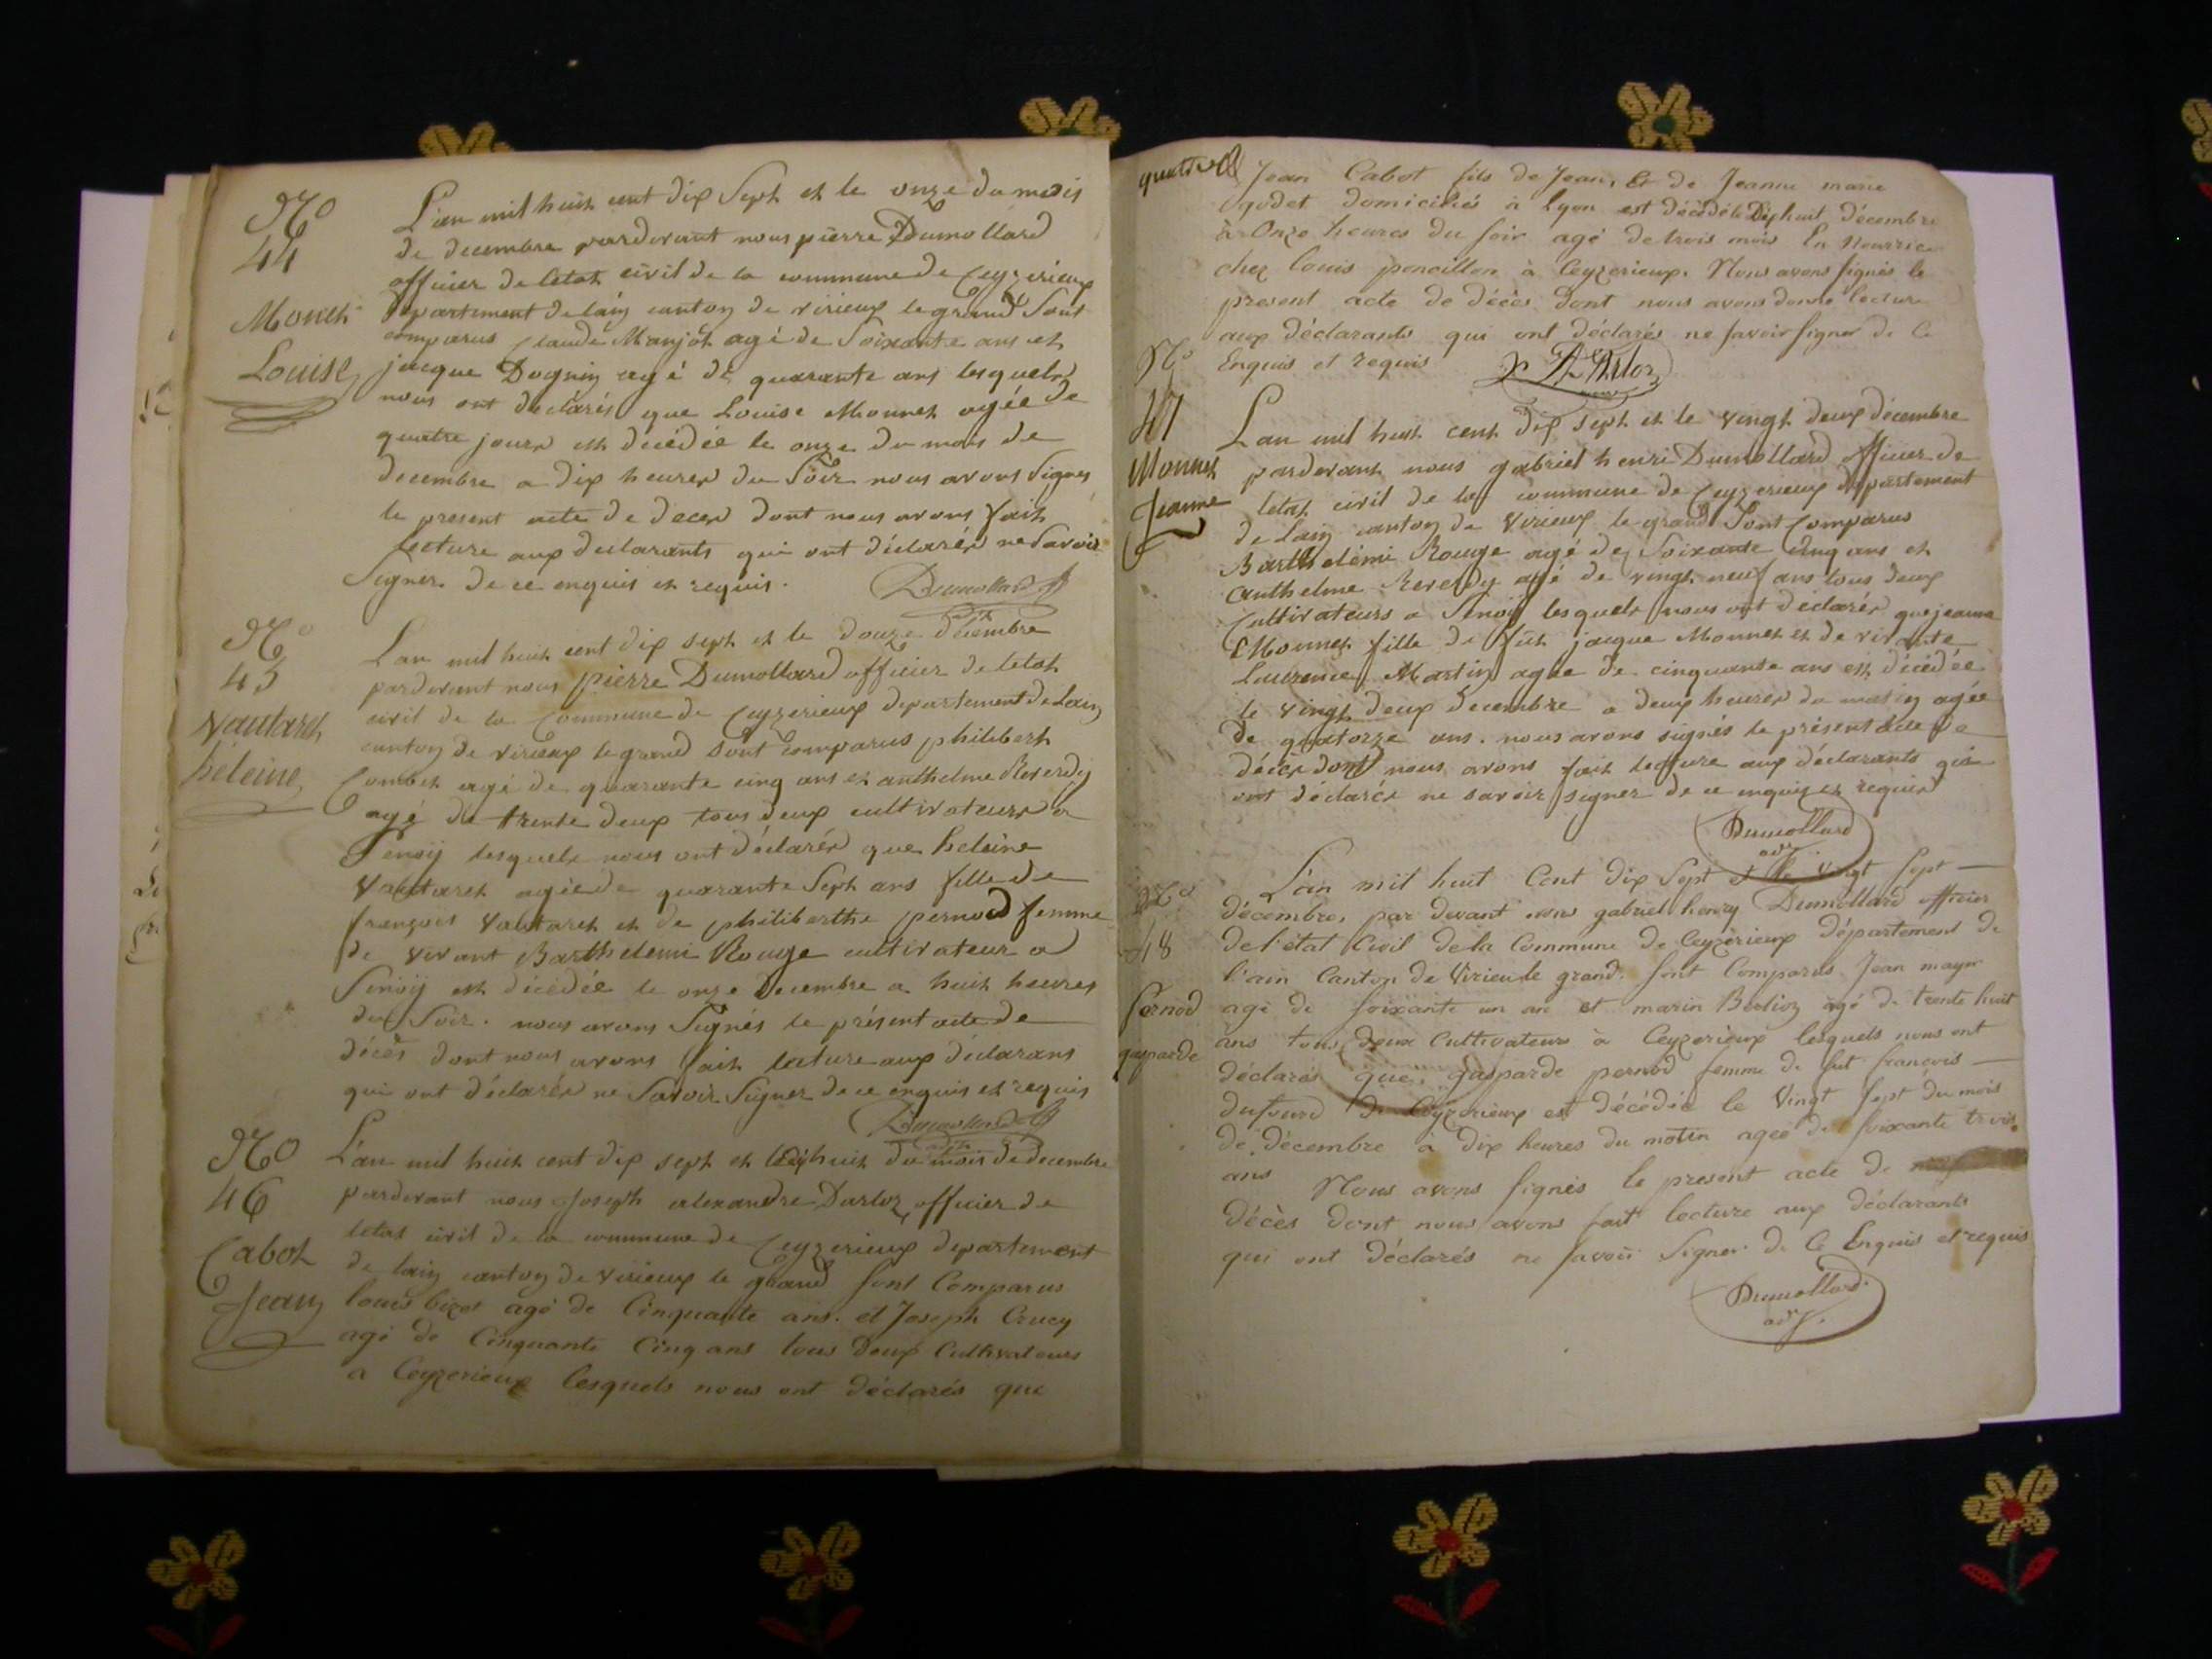 No
44
Monet
Louise
L'an mil huit cent dix Sept et le onze du mois
de decembre pardevant nous pierre Dumollard
officier de letat civil de la commune de Ceyzerieux
departement de lain canton de virieux le grand Sont
comparus claude Manjot agé de Soixante ans et
jacque Dognin agé de quarante ans lesquels
nous ont declarés que Louise Monnet agée de
quatre jours est décédée le onze du mois de
decembre a dix heures du Soir nous avons Signes
le present acte de deces dont nous avons fait
lecture aux declarants qui ont déclarés ne Savoir
Signer de ce enquis et requis.
Dumollard
No
45
Vautaret
héleine
L'an mil huit cent dix sept et le douze decembre
pardevant nous pierre Dumollard officier de letat
civil de la commune de Ceyzerieux departement de Lain
canton de virieux le grand sont comparus philibert
Combet agé de quarante cinq ans et anthelme Reverdy
agé de trente deux tous deux cultivateurs a
Senoy lesquels nous ont déclarés que heleine
Vautaret agée de quarante Sept ans fille de
françois Vautaret et de philiberthe pernod femme
de vivant Barthelemi Rouge cultivateur a
Senoij est décédée le onze Decembre a huit heures
du Soir. nous avons Signés le présent acte de
décès dont nous avons fait lecture aux déclarans
qui ont déclarés ne Savoir Signer de ce enquis et requis
Dumollard
No
46
Cabot
Jean
L'an mil huit cent dix sept et le dix huit du mois de decembre
pardevant nous Joseph alexandre Darloz officier de
letat civil de la commune de Ceyzerieux departement
de lain canton de virieux le grand sont Comparus
louis bizot agé de Cinquante ans. et Joseph Crucy
agé de Cinquante Cinq ans tous Deux Cultivateurs
a Ceyzerieux lesquels nous ont déclarés que
Jean Cabot fils de Jean, Et de Jeanne marie
godet domiciliés à lyon est décédé le Dix huit décembre
à Onze heures du soir agé de trois mois En Nourrice
chez louis poncillon à Ceyzerieux. Nous avons signés le
present acte de décès dont nous avons donné lecture
aux déclarants qui ont déclarés ne savoir signer de Ce
Enquis et requis
No
47
Monnet
Jeanne
L'an mil huit cent dix sept et le vingt deux decembre
pardevant nous gabriel henri Dumollard officier de
letat civil de la commune de Ceyzerieux departement
de Lain canton de Virieux le grand Sont Comparus
Barthelémi Rouge agé de Soixante Cinq ans et
anthelme Reverdy agé de vingt neuf ans tous deux
Cultivateurs a Senoy lesquels nous ont déclarés que jeanne
Monnet fille de fut jacque Monnet et de vivante
Laurence Martin agée de cinquante ans est décédée
le vingt deux decembre a deux heures du matin agée
de quatorze ans. nous avons signés le présent acte de
décès dont nous avons fait lecture aux déclarants qui
ont déclarés ne savoir signer de ce enquis et requis
Dumollard
adj.
No
48
Pernod
gasparde
L'an mil huit Cent dix Sept et le vingt sept
décembre, par devant nous gabriel henry Dumollard officier
de l'état Civil de la Commune de Ceyzerieux département de
l'ain Canton de Virieu le grand. sont Comparus Jean mayer
agé de soixante un an et marin Berlioz agé de trente huit
ans tous deux Cultivateurs à Ceyzerieux lesquels nous ont
déclarés que, gasparde pernod femme de fut françois
dufourd de Ceyzerieux est décédée le Vingt sept du mois
de décembre à dix heures du matin agée de soixante trois
ans Nous avons signés le present acte de
décès dont nous avons fait lecture aux déclarants
qui ont déclarés ne savoir Signer de Ce Enquis et requis
Dumollard
adj.